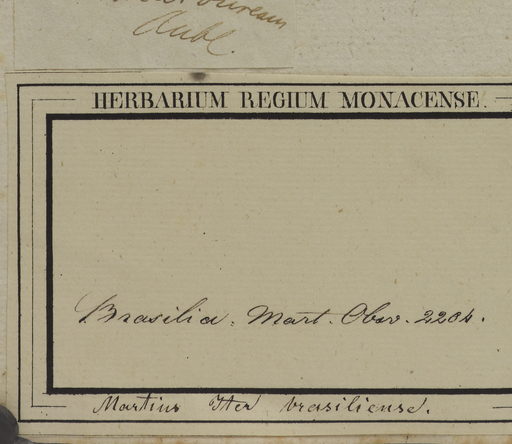 Aubl.
HERBARIUM REGIUM MONACENSE.
Brasilia. Mart. Obsv. 2204.
Martius Iter brasiliense.